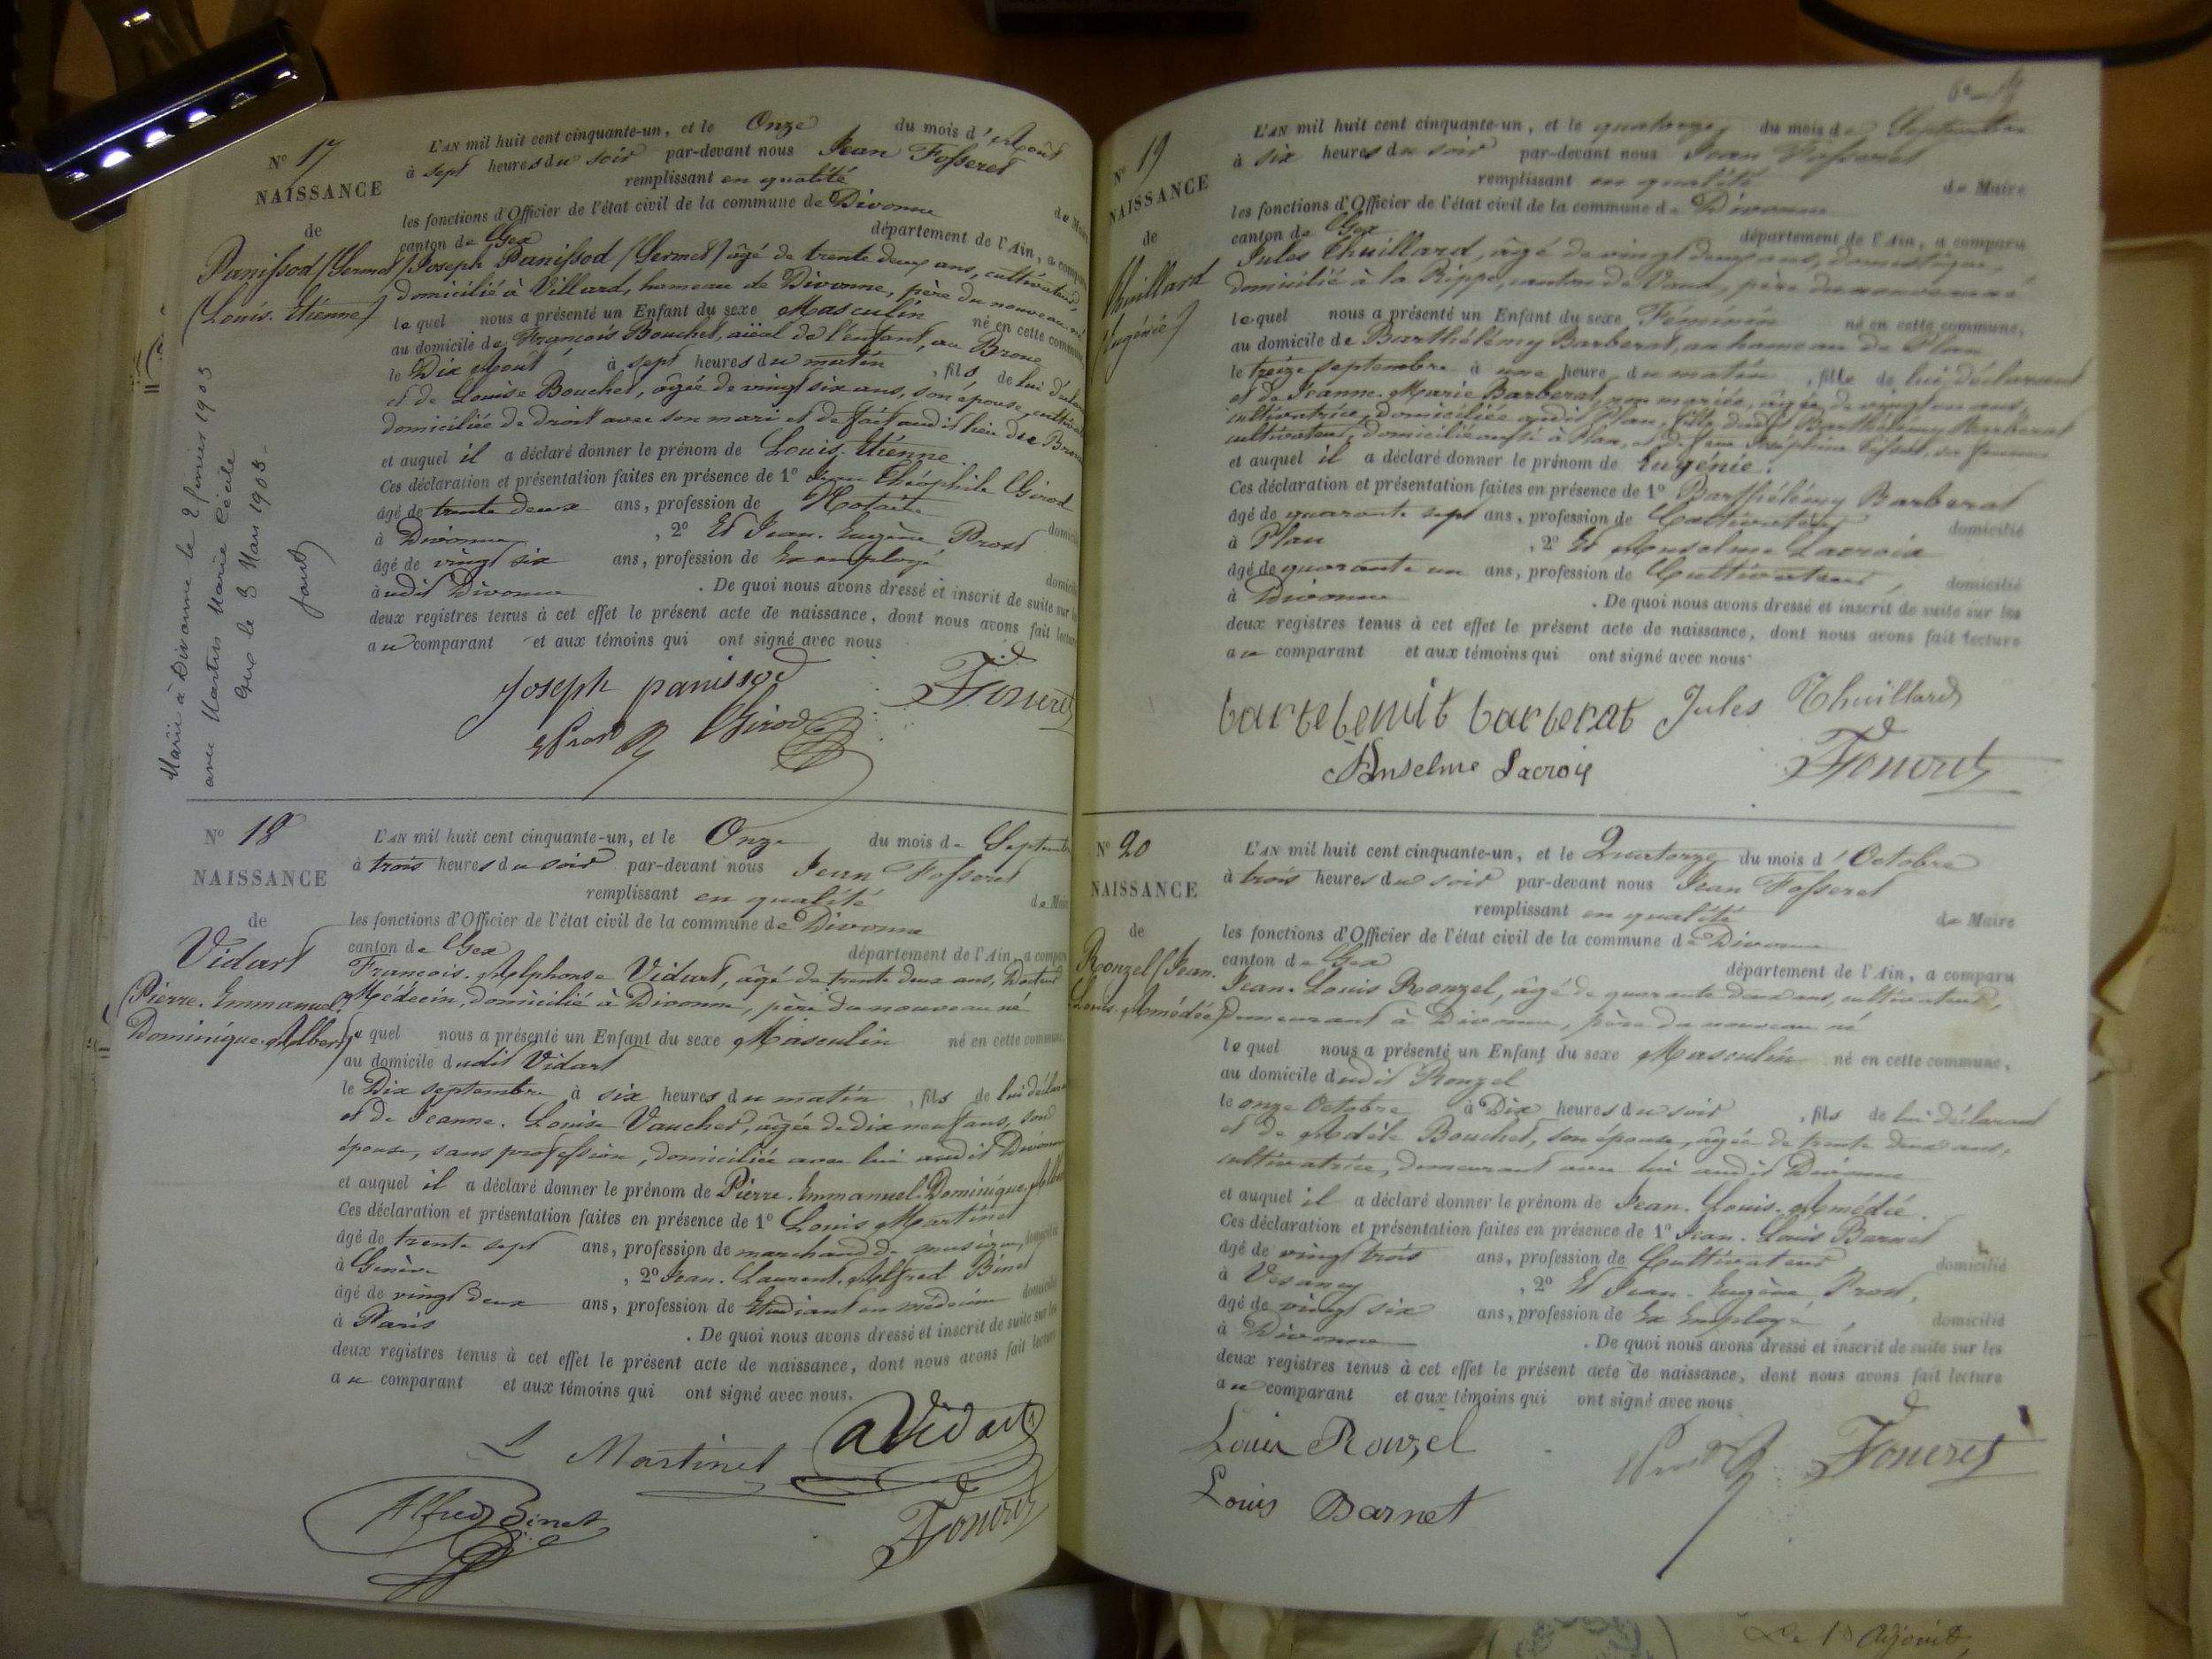 Nº 17
NAISSANCE
de
Panissod (Sermet)
(Louis. Etienne)
L'AN mil huit cent cinquante-un, et le Onze du mois d'Août
à sept heures du soir par-devant nous Jean Fosseret
remplissant en qualité de Maire
les fonctions d'Officier de l'état civil de la commune de Divonne
canton de Gex département de l'Ain, a comparu
Joseph Panissod (Sermet) âgé de trente deux ans, cultivateur,
domicilié à Villard, hameau de Divonne, père du nouveau né
lequel nous a présenté un Enfant du sexe Masculin né en cette commune,
au domicile de François Bouchet, aïeal de l'enfant, au Broue
le Dix Août à sept heures du matin, fils de lui déclarant
et de Louise Bouchet, âgée de vingt six ans, son épouse,
domiciliée de droit avec son mari et de fait audit lieu de Broue
et auquel il a déclaré donner le prénom de Louis. Etienne.
Ces déclaration et présentation faites en présence de 1º Théophile Girod
âgé de trente deux ans, profession de Notaire domicilié
à Divonne, 2º Et Jean. Eugène Prost
âgé de vingt six ans, profession de Ex employé domicilié
à udit Divonne. De quoi nous avons dressé et inscrit de suite sur les
deux registres tenus à cet effet le présent acte de naissance, dont nous avons fait lecture
au comparant et aux témoins qui ont signé avec nous
Joseph panissod
Fosseret
EProst Girod
Marié à Divonne le 2 février 1903
avec Martin Marie Cécile
Gex le 3 Mars 1903.
Nº 18
NAISSANCE
de
Vidart
(Pierre. Emmanuel.
Dominique. Albert)
L'AN mil huit cent cinquante-un, et le Onze du mois de Septembre
à trois heures du soir par-devant nous Jean Fosseret
remplissant en qualité de Maire
les fonctions d'Officier de l'état civil de la commune de Divonne
canton de Gex département de l'Ain, a comparu
François. Alphonse Vidart, âgé de trente deux ans, Docteur
Médecin, domicilié à Divonne, père du nouveau né
lequel nous a présenté un Enfant du sexe Masculin né en cette commune,
au domicile dudit Vidart
le Dix septembre à six heures du matin, fils de lui déclarant
et de Jeanne. Louise Vaucher, âgée de dix neuf ans, son
épouse, sans profession, domiciliée avec lui audit Divonne
et auquel il a déclaré donner le prénom de Pierre. Emmanuel. Dominique. Albert
Ces déclaration et présentation faites en présence de 1º Louis Martinet
âgé de trente sept ans, profession de marchand de musique, domicilié
à Genève, 2º Jean. Laurent. Alfred Binet
âgé de vingt deux ans, profession de Etudiant en médecine domicilié
à Paris. De quoi nous avons dressé et inscrit de suite sur les
deux registres tenus à cet effet le présent acte de naissance, dont nous avons fait lecture
au comparant et aux témoins qui ont signé avec nous.
L Martinet AVidart
Alfred Binet Fosseret
Nº 19
NAISSANCE
de
Thuillard
(Eugénie)
L'AN mil huit cent cinquante-un, et le quatorze du mois de Septembre
à six heures du soir par-devant nous Jean Fosseret
remplissant en qualité de Maire
les fonctions d'Officier de l'état civil de la commune de Divonne
canton de Gex département de l'Ain, a comparu
Jules Thuillard, âgé de vingt deux ans, domestique,
domicilié à la Rippe, canton de Vaud, père du nouveau né
lequel nous a présenté un Enfant du sexe Féminin né en cette commune,
au domicile de Barthélémy Barberat, au hameau de Plan
le treize septembre à une heure du matin, fille de lui déclarant
et de Jeanne. Marie Barberat, non mariée, âgée de vingt un ans,
cultivatrice, domiciliée audit Plan, fille dudit Barthélémy Barberat
cultivateur, domicilié aussi à Plan, et de Joséphine Tissot, sa femme
et auquel il a déclaré donner le prénom de Eugénie.
Ces déclaration et présentation faites en présence de 1º Barthélémy Barberat
âgé de quarante sept ans, profession de Cultivateur domicilié
à Plan, 2º Et Anselme Lacroix
âgé de quarante un ans, profession de Cultivateur, domicilié
à Divonne. De quoi nous avons dressé et inscrit de suite sur les
deux registres tenus à cet effet le présent acte de naissance, dont nous avons fait lecture
au comparant et aux témoins qui ont signé avec nous
bartelemit barberat Jules Thuillard
Anselme Lacroix Fosseret
Nº 20
NAISSANCE
de
Ronzel (Jean.
Louis. Amédée)
L'AN mil huit cent cinquante-un, et le Quatorze du mois d'Octobre
à trois heures du soir par-devant nous Jean Fosseret
remplissant en qualité de Maire
les fonctions d'Officier de l'état civil de la commune de Divonne
canton de Gex département de l'Ain, a comparu
Jean. Louis Ronzel, âgé de quarante deux ans, cultivateur,
demeurant à Divonne, père du nouveau né
lequel nous a présenté un Enfant du sexe Masculin né en cette commune,
au domicile dudit Ronzel
le onze Octobre à Dix heures du soir, fils de lui déclarant
et de Adèle Bouchet, son épouse, âgée de trente deux ans,
cultivatrice, demeurant avec lui audit Divonne
et auquel il a déclaré donner le prénom de Jean. Louis. Amédée.
Ces déclaration et présentation faites en présence de 1º Jean. Louis Barnet
âgé de vingt trois ans, profession de Cultivateur domicilié
à Vesancy, 2º Et Jean. Eugène Prost,
âgé de vingt six ans, profession de Ex Employé, domicilié
à Divonne. De quoi nous avons dressé et inscrit de suite sur les
deux registres tenus à cet effet le présent acte de naissance, dont nous avons fait lecture
au comparant et aux témoins qui ont signé avec nous
Louis Ronzel EProst Fosseret
Louis Barnet
Le 1º Adjoint,